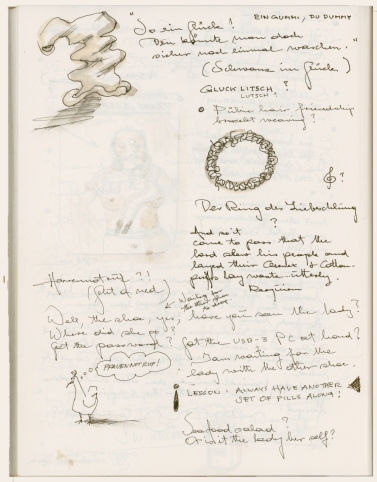 EIN GUMMI, DU DUMMY
"So ein Glück!
Den könnte man doch
sicher noch einmal waschen."
(Schwanz im Glück)
GLUCK LITSCH?
LUTSCH
Pubic hair friendship
bracelet weaving?
?
Der Ring des Liebesbling
?
And so it
came to pass that the
lord
his people and
layed their
& Cotton
puffs lay waste utterly.
Requiem
?!
(Get a
)
Waiting for
the other shoe
to drop
Well, the shoe, yes, have you seen the lady?
Where did she go?
Got the password? Got the USB-3 PC at hand?
PFAUEN
I am waiting for the
lady with the other shoe.
LESSON: ALWAYS HAVE ANOTHER
SET OF PILLS ALONG!
Seafood salad?
Or is it the lady her self?